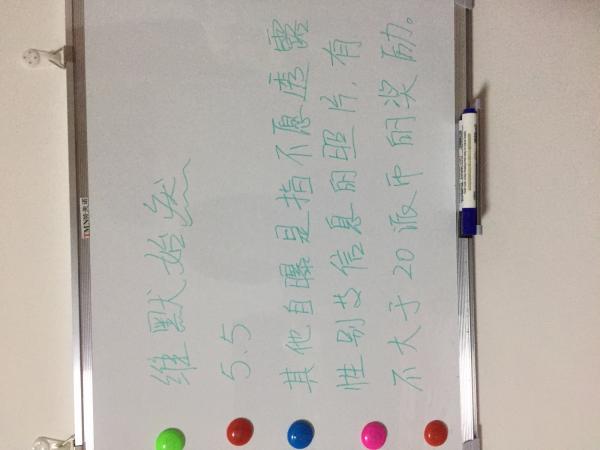 维默始终
5.5
其他自曝是指不愿透露
性别等信息的照片,有
不大于20派币的奖励。